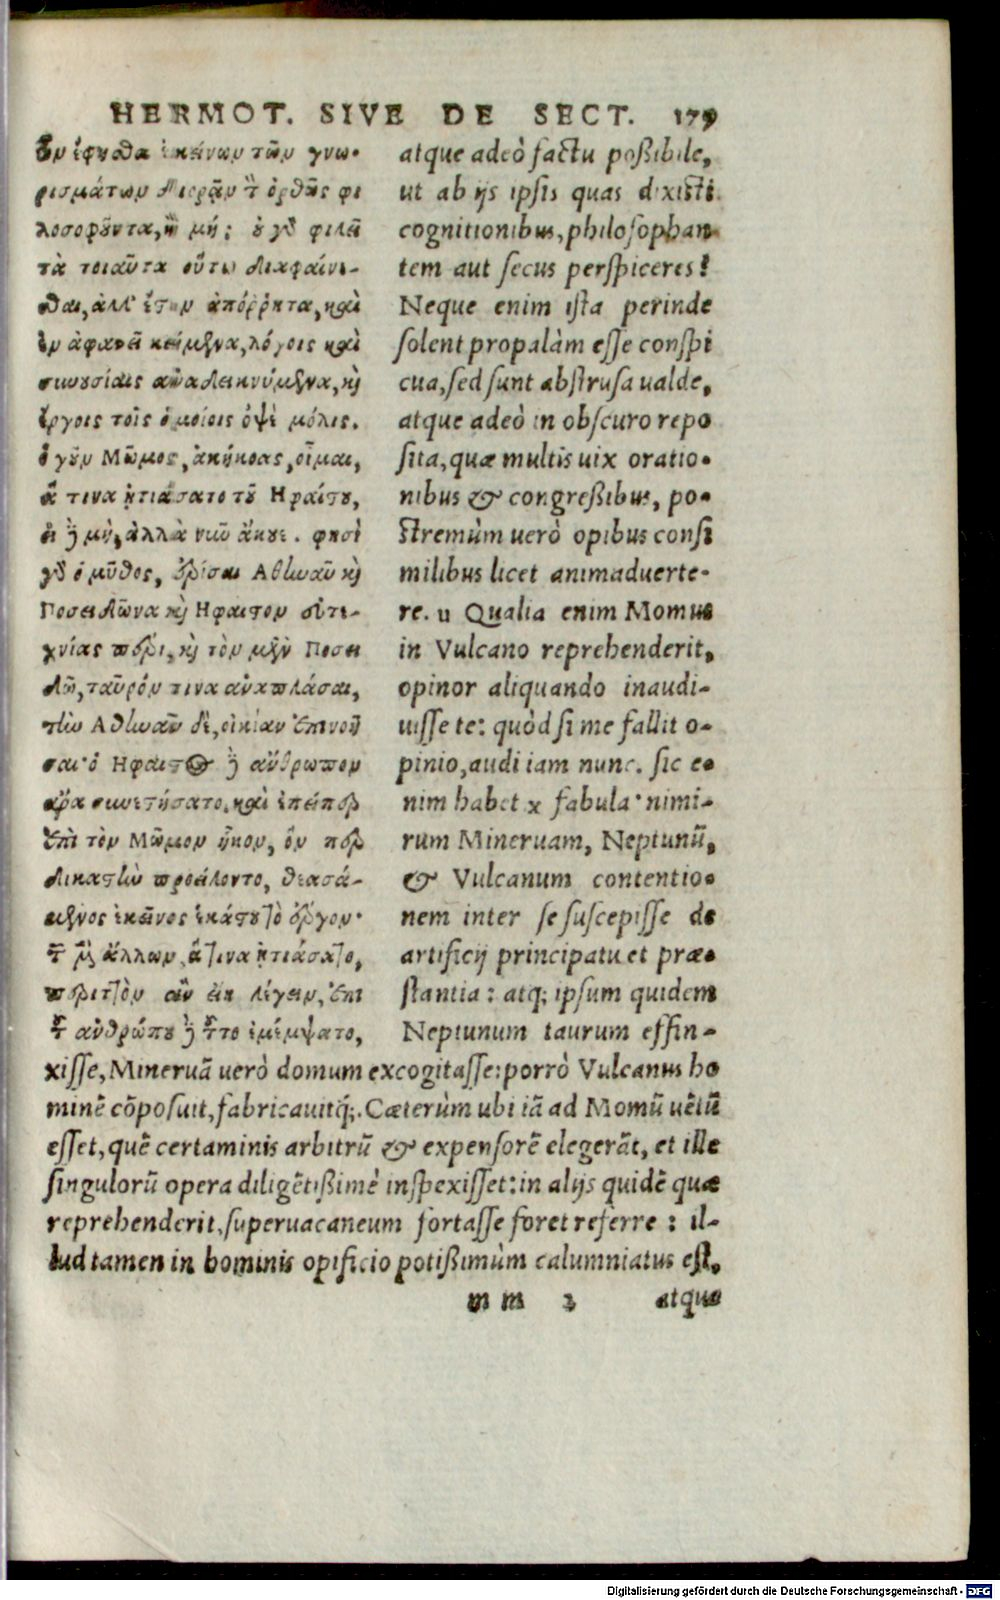 HERMOT. SIVE DE SECT. 179
ὧν ἔφησθα ἐκείνων τῶν γνω-
ρισμάτων διορᾷν τ̀ ὀρθῶς φι
λοσοφοῦντα, ἢ μή; οὐ γὸ φιλεῖ
τὰ τοιαῦτα οὕτω διαφαίνε-
σθαι, ἀλλ' ἔστιν ἀπόῤῥητα, καὶ
ἐν ἀφανεῖ κείμενα, λόγοις καὶ
συνουσίαις ἀναδεικνύμενα, κὶ
ἔργοις τοῖς ὁμοίοις ὀψὲ μόλις.
ὁ γοῦν Μῶμος, ἀκήκοας, οἶμαι,
ἅ τινα ᾐτιάσατο τοῦ Ηφαίστου,
εἰ ἢ μὴ, ἀλλὰ νῦν ἄκουε. φησὶ
γὸ ὁ μῦθος, ἐρίσαι Αθηναῦ κὶ
Ποσειδῶνα κὶ Ηφαιστον εὐτε-
χνίας πέρι, κὶ τὸν μὲν Ποσει
δῶ, ταῦρόν τινα ἀναπλάσαι,
τὴν Αθηναῦ δὲ, οἰκίαν ἐπινοῆ
σαι· ὁ Ηφαιστος ἢ ἄνθρωπον
ἄρα συνεστήσατο, καὶ ἐπείπερ
ἐπὶ τὸν Μῶμον ἧκον, ὅν περ
δικαστὴν προείλοντο, θεασά-
μενος ἐκεῖνος ἑκάστου τὸ ἔργον·
τ̀ μ̀ ἄλλων ἅτινα ᾐτιάσατο,
περιττὸν ἂν εἴη λέγειν, ἐπὶ
τ̀ ἀνθρώπου ἢ τοῦτο ἐμέμψατο,
atque adeò factu poßibile,
ut ab ijs ipsis quas dixisti
cognitionibus, philosophan-
tem aut secus perspiceres?
Neque enim ista perinde
solent propalàm esse conspi
cua, sed sunt abstrusa ualde,
atque adeò in obscuro repo
sita, quæ multis uix oratio-
nibus & congreßibus, po-
stremùm uerò opibus consi
milibus licet animaduerte-
re. u Qualia enim Momus
in Vulcano reprehenderit,
opinor aliquando inaudi-
uisse te: quòd si me fallit o-
pinio, audi iam nunc. sic e-
nim habet x fabula· nimi-
rum Mineruam, Neptunũ,
& Vulcanum contentio-
nem inter se suscepisse de
artificij principatu et præ-
stantia: atq; ipsum quidem
Neptunum taurum effin-
xisse, Mineruã uerò domum excogitasse: porrò Vulcanus ho
minẽ cõposuit, fabricauitq́;. Cæterùm ubi iã ad Momũ uẽtũ
esset, quẽ certaminis arbitrũ & expensorẽ elegerãt, et ille
singulorũ opera diligẽtißimè inspexisset: in alijs quidẽ quæ
reprehenderit, superuacaneum fortasse foret referre: il-
lud tamen in hominis opificio potißimùm calumniatus est,
mm 2 atque
Digitalisierung gefördert durch die Deutsche Forschungsgemeinschaft - DFG